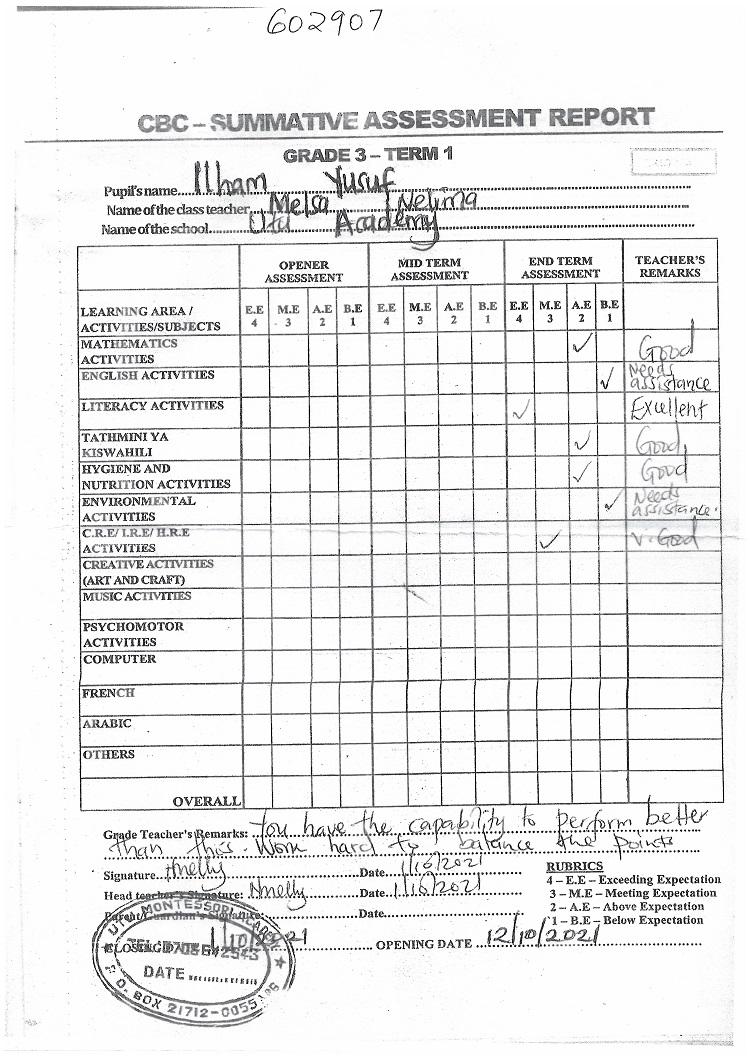 602907
CBC – SUMMATIVE ASSESSMENT REPORT
GRADE 3 – TERM 1
Pupil's name....Ilham Yusuf
Name of the class teacher....Melsa Nelima
Name of the school....Utu Academy
OPENER ASSESSMENT MID TERM ASSESSMENT END TERM ASSESSMENT TEACHER'S REMARKS
LEARNING AREA / ACTIVITIES/SUBJECTS E.E 4 M.E 3 A.E 2 B.E 1 E.E 4 M.E 3 A.E 2 B.E 1 E.E 4 M.E 3 A.E 2 B.E 1
MATHEMATICS ACTIVITIES ✓ Good
ENGLISH ACTIVITIES ✓ Needs assistance
LITERACY ACTIVITIES ✓ Exullent
TATHMINI YA KISWAHILI ✓ Good
HYGIENE AND NUTRITION ACTIVITIES ✓ Good
ENVIRONMENTAL ACTIVITIES ✓ Needs assistance.
C.R.E/ I.R.E/ H.R.E ACTIVITIES ✓ V. Good
CREATIVE ACTIVITIES (ART AND CRAFT)
MUSIC ACTIVITIES
PSYCHOMOTOR ACTIVITIES
COMPUTER
FRENCH
ARABIC
OTHERS
OVERALL
Grade Teacher's Remarks: You have the capability to perform better
than this. Work hard to balance the points
Signature..........Date 1/10/2021
Head teacher's Signature: ..........Date 1/10/2021
Parent/Guardian's Signature: ..........Date..........
CLOSING DATE 1/10/2021 OPENING DATE 12/10/2021
RUBRICS
4 – E.E – Exceeding Expectation
3 – M.E – Meeting Expectation
2 – A.E – Above Expectation
1 – B.E – Below Expectation
MONTESSORI
DATE
P. O. BOX 21712-0055